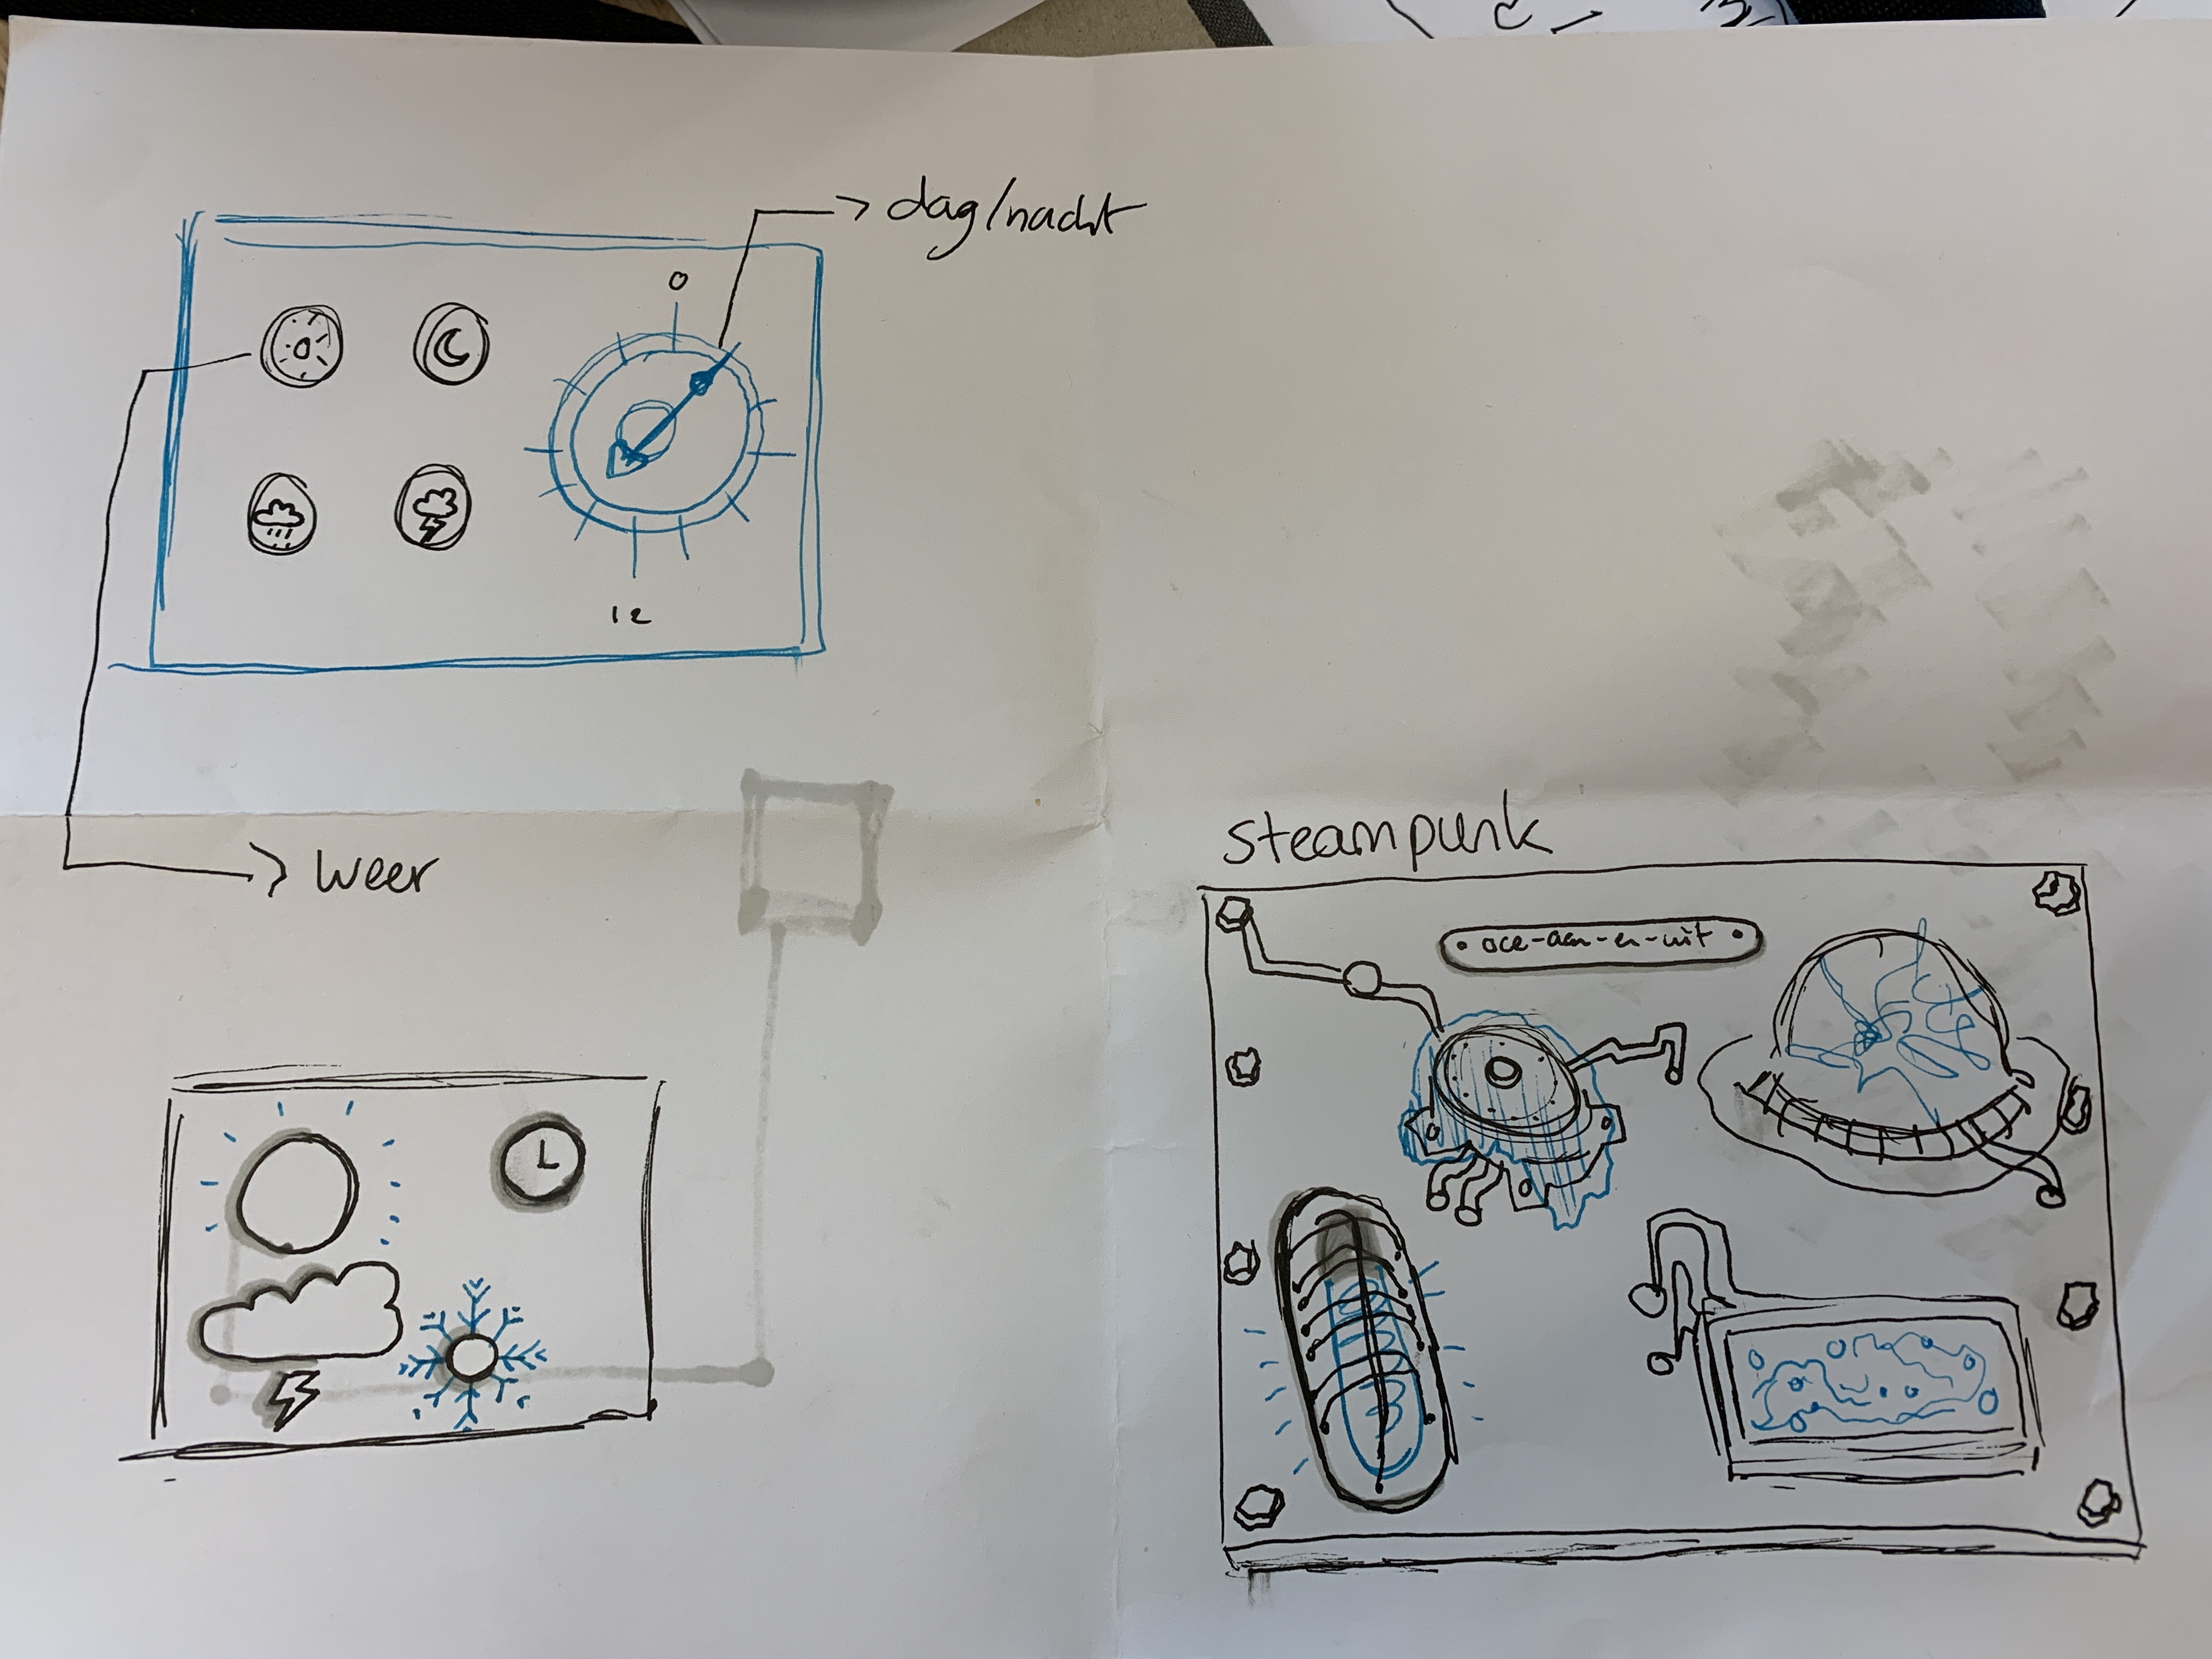 dag/nacht
0
12
weer
steampunk
oce-aan-en-uit